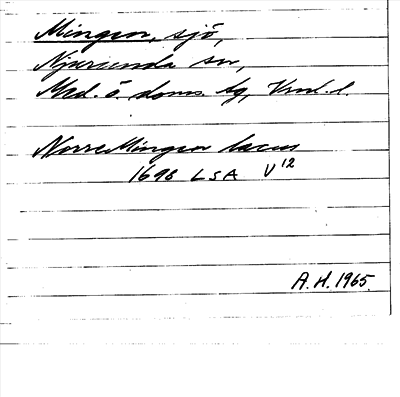 Mingen, sjö,
Njurunda sn,
Med. ö. doms. tg, Vml. l.
Norre Mingen lacus
1698 LSA V 12
A. H. 1965.